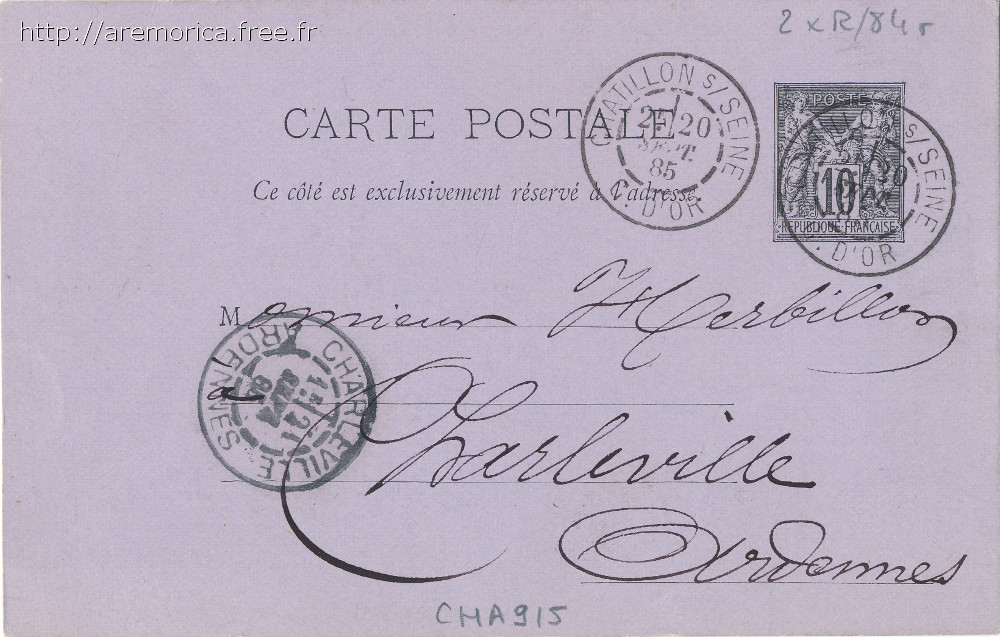 http://aremorica.free.fr
2 x R/84
CARTE POSTALE
Ce côté est exclusivement réservé à l'adresse.
CHATILLON S/SEINE
2E/20
SEPT.
85
D'OR
POSTE
10
REPUBLIQUE FRANÇAISE
S/SEINE
D'OR
Monsieur Herbillon
à
CHARLEVILLE
ARDENNES
Charleville
Ardennes
CHA915